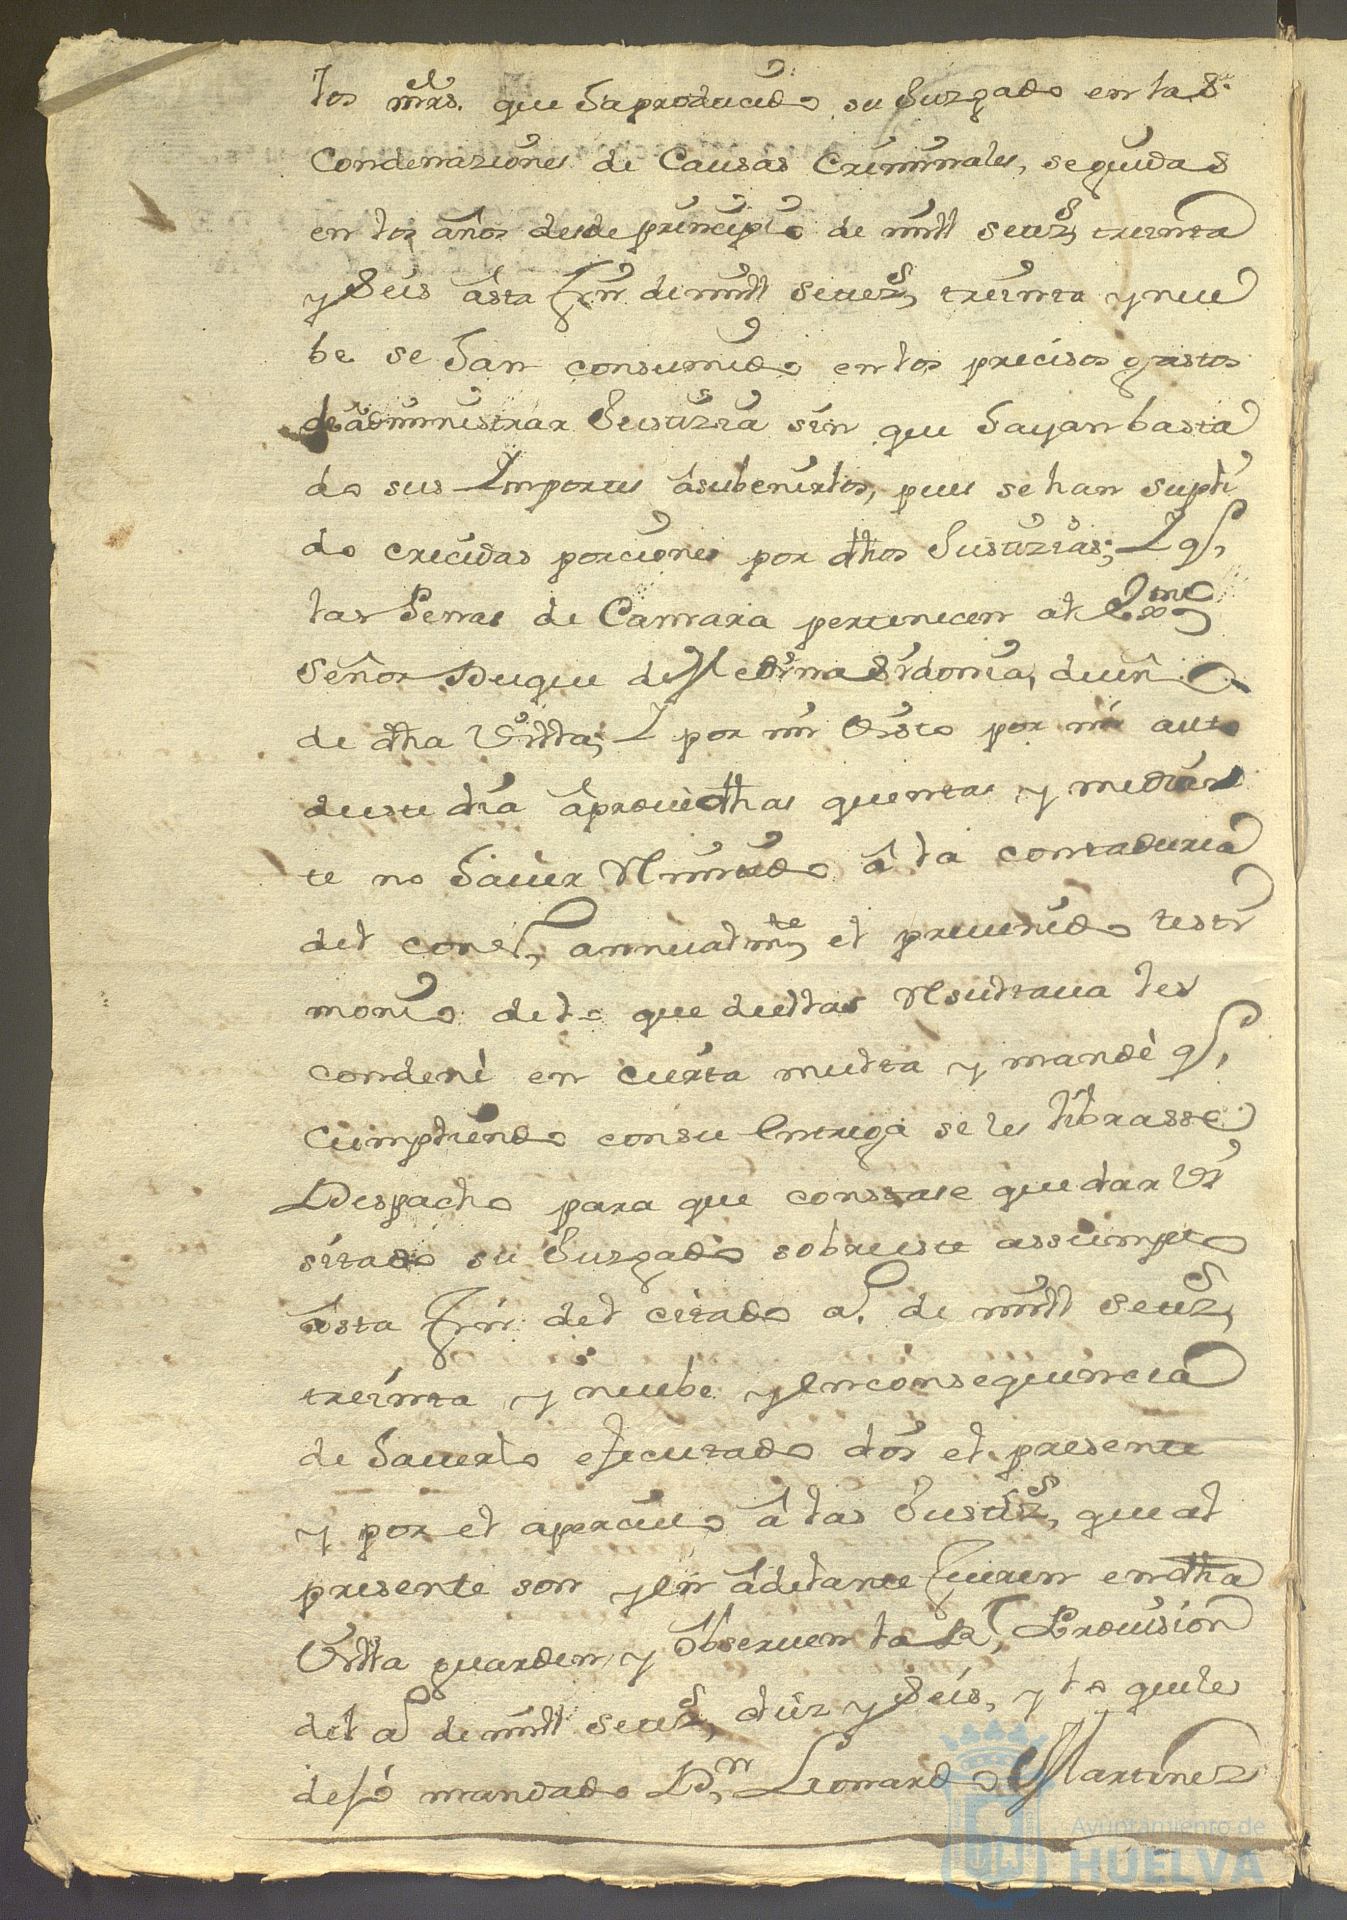 los mrs. que ha producido su Juzgado en las
Condenaziones de Causas Criminales, seguidas
en los años desde principio de mill setez.s treinta
y seis asta fin de mill setez.s treinta y nue
be se han consumido en los precisos gastos
de administrar Justizia sin que hayan basta
do sus Importes a subenirlos, pues se han supli
do crecidas porciones por dhos Justizias; Y q.e
las Penas de Camara pertenecen al Exmo
Señor Duque de Medina Sidonia, dueño
de dha Villa; Y por mi Visto por mi auto
de este dia aprove dhas quentas y median
te no haver Remitido a la contaduria
del cons.o, annualm.te el prevenido testi
monio de lo que de ellas Resultava les
condenè en cierta multa y mandè q.e
Cumpliendo con su Entrega se les librasse
Despacho para que constase quedar Vi
sitado su Juzgado sobre este assumpto
asta fin del citado a.o de mill setez.s
treinta y nuebe y En consequencia
de haverlo ejecutado doy el presente
y por el apercivo a las Justiz.s, que al
presente son y En adelante fueren en dha
Villa guarden y observen la R.l Provision
del a.o de mill setez.s, diez y seis, y lo que les
dejó mandado D.n Leonardo Martinez
Ayuntamiento de
HUELVA